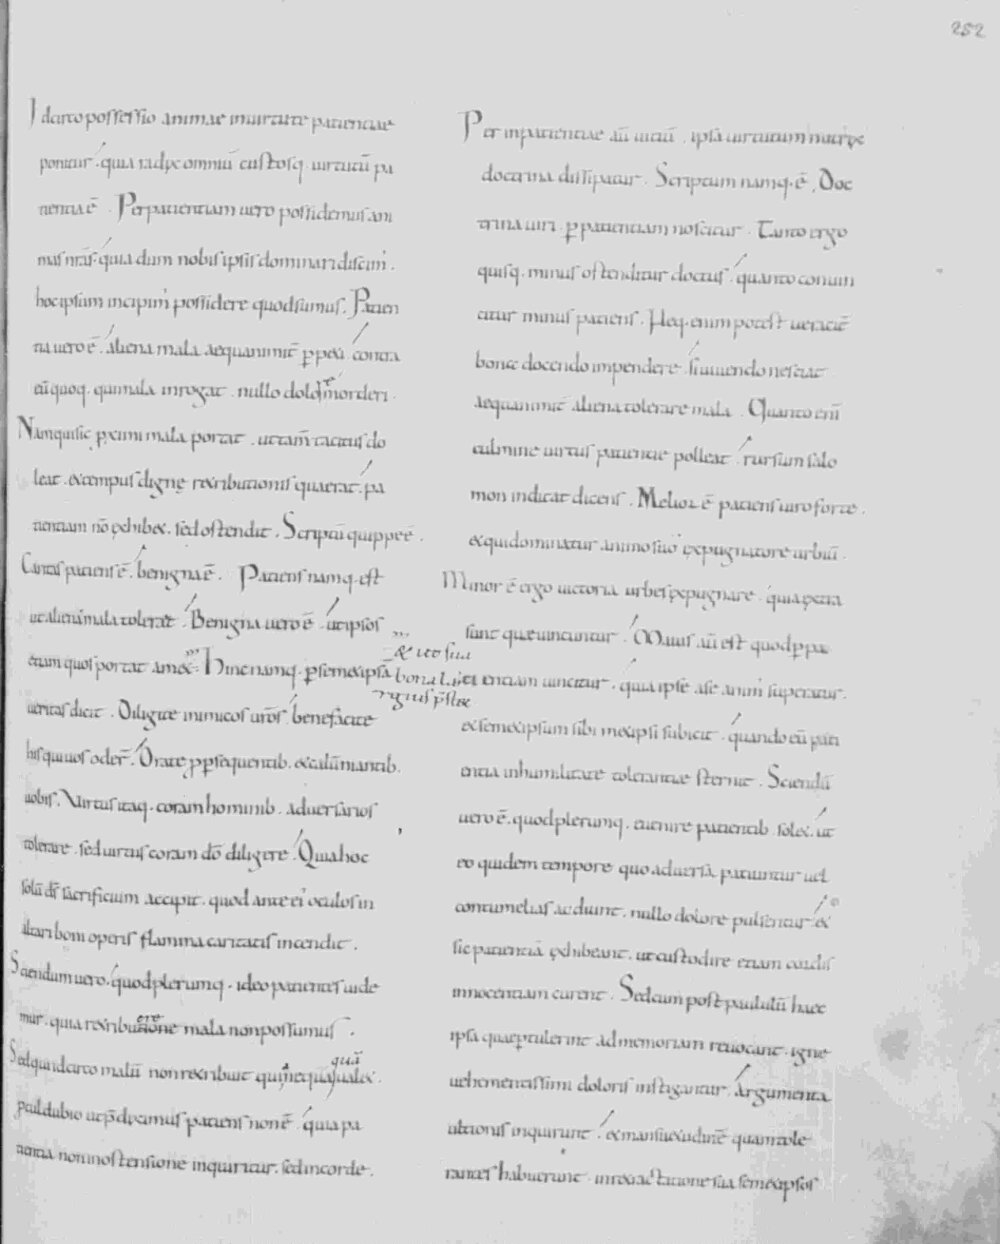 252
Idcirco possessio animae inuirtute patientiae
ponitur. quia radix omniū custosq. uirtutū pa
tientia ē. Perpatientiam uero possidemus ani
mas nr̄as. quia dum nobis ipsis dominari discim'.
hoc ipsum incipim' possidere quodsumus. Patien
tia uero ē. aliena mala aequanimit̄ ꝑpeti. contra
eū quoq. quimala inrogat. nullo dolore morderi.
Namquisic ꝓximi mala portat. ut tam̄ tacitus do
leat. &tempus dignę r&ributionis quaerat. pa
tientiam nō exhib&. sed ostendit. Scriptū quippe ē.
Caritas patiens ē. benigna ē. Patiens namq. est
ut aliena mala toler&. Benigna uero ē. ut ipsos
etiam quos portat am&. Hinc namq. ꝑsem&ipsa
ueritas dicit. Diligite inimicos ur̄os. benefacite
his quiuos oder̄. Orate ꝓ ꝑsequentib. &calūniantib.
uobis. Virtus itaq. coram hominib. aduersarios
tolerare. sed uirtus coram dō diligere. Quia hoc
solū dr̄ sacrificium accipit. quod ante ei' oculos in
altari boni operis flamma caritatis incendit.
Sciendum uero. quod plerumq. ideo patientes uide
mur. quia r&ribuere mala non possumus.
Sed qui idcirco malū non r&ribuit quia nequaquā ual&.
ꝓculdubio ut p̄diximus patiens non ē. quia pa
tientia non inostensione inquiritur. sed incorde.
Per inpatientiae aū uitiū. ipsa uirtutum nutrix
doctrina dissipatur. Scriptum namq. ē. Doc
trina uiri. ꝑ patientiam noscitur. Tanto ergo
quisq. minus ostenditur doctus. quanto conuin
citur minus patiens. Neq. enim potest ueracit̄
bona docendo impendere. si uiuendo nesciat
aequanimit̄ aliena tolerare mala. Quanto enī
culmine uirtus patientiae polleat. rursum salo
mon indicat dicens. Melior ē patiens uiro forte.
&qui dominatur animo suo expugnatore urbiū.
Minor ē ergo uictoria urbes expugnare. quia extra
sunt quae uincuntur. Maius aū est quod ꝑ pa
tientiam uincitur. quia ipse a se anim' superatur.
&sem&ipsum sibim&ipsi subicit. quando eū pati
entia inhumilitate tolerantiae sternit. Sciendū
uero ē. quod plerumq. euenire patientib. sol&. ut
eo quidem tempore quo aduersa patiuntur uel
contumelias audiunt. nullo dolore pulsentur. &
sic patientiā exhibeant. ut custodire etiam cordis
innocentiam curent. Sed cum post paululū haec
ipsa quae ꝑtulerint ad memoriam reuocant. igne
uehementissimi doloris instigantur. Argumenta
ultionis inquirunt. &mansu&udinē quam tole
rantes habuerunt. inr&ractatione sua sem&ipsos